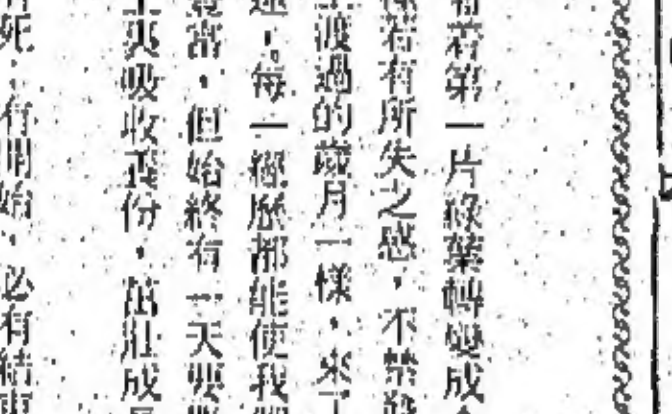 着第一片綠葉轉變成
若有所失之感，不禁
渡過的歲月一樣，來了
，每一經歷都能使我
富，但始終有一天要
裏吸收養份，茁壯成長
死，有開始，必有結束